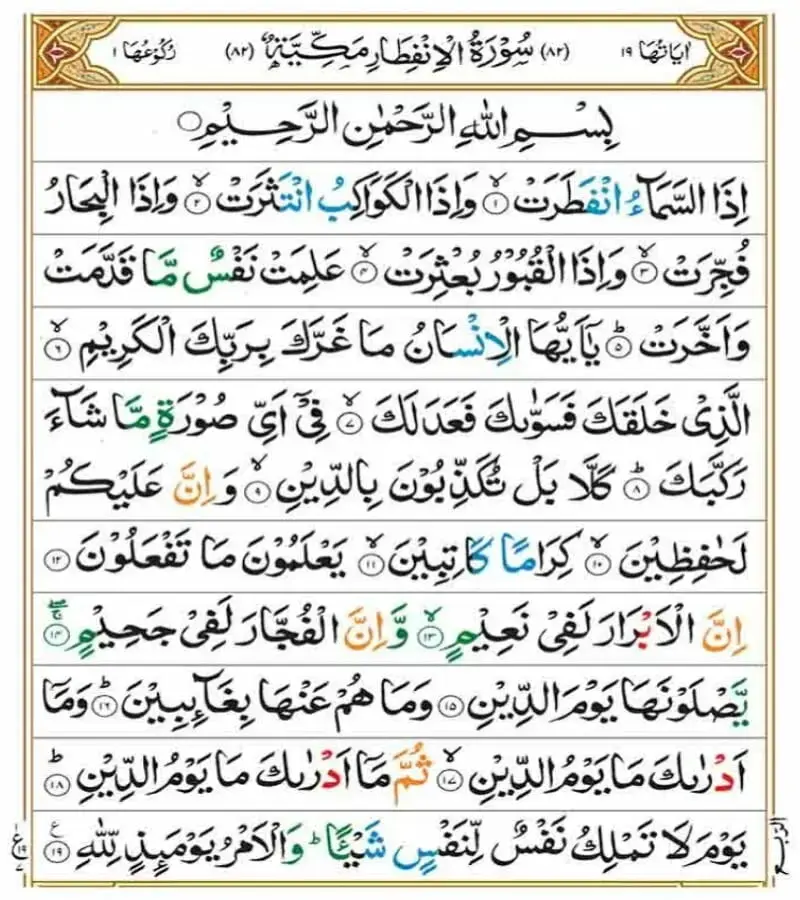 اٰيَاتُهَا ١٩ (٨٢) سُوْرَةُ الْاِنْفِطَارِ مَكِّيَّةٌ (٨٢) رُكُوْعُهَا ١
بِسْمِ اللّٰهِ الرَّحْمٰنِ الرَّحِيْمِ ۝
اِذَا السَّمَآءُ انْفَطَرَتْ ۙ‏﴿۱﴾ وَاِذَا الْكَوَاكِبُ انْتَثَرَتْ ۙ‏﴿۲﴾ وَاِذَا الْبِحَارُ
فُجِّرَتْ ۙ‏﴿۳﴾ وَاِذَا الْقُبُوْرُ بُعْثِرَتْ ۙ‏﴿۴﴾ عَلِمَتْ نَفْسٌ مَّا قَدَّمَتْ
وَاَخَّرَتْ ؕ‏﴿۵﴾ يٰۤاَيُّهَا الْاِنْسَانُ مَا غَرَّكَ بِرَبِّكَ الْكَرِيْمِ ۙ‏﴿۶﴾
الَّذِىْ خَلَقَكَ فَسَوّٰٮكَ فَعَدَلَكَ ۙ‏﴿۷﴾ فِىْۤ اَىِّ صُوْرَةٍ مَّا شَآءَ
رَكَّبَكَ ؕ‏﴿۸﴾ كَلَّا بَلْ تُكَذِّبُوْنَ بِالدِّيْنِ ۙ‏﴿۹﴾ وَاِنَّ عَلَيْكُمْ
لَحٰفِظِيْنَ ۙ‏﴿۱۰﴾ كِرَامًا كَاتِبِيْنَ ۙ‏﴿۱۱﴾ يَعْلَمُوْنَ مَا تَفْعَلُوْنَ ‏﴿۱۲﴾
اِنَّ الْاَبْرَارَ لَفِىْ نَعِيْمٍ ۙ‏﴿۱۳﴾ وَّاِنَّ الْفُجَّارَ لَفِىْ جَحِيْمٍ ۖۚ‏﴿۱۴﴾
يَّصْلَوْنَهَا يَوْمَ الدِّيْنِ ‏﴿۱۵﴾ وَمَا هُمْ عَنْهَا بِغَآٮِٕبِيْنَ ؕ‏﴿۱۶﴾ وَمَاۤ
اَدْرٰٮكَ مَا يَوْمُ الدِّيْنِ ۙ‏﴿۱۷﴾ ثُمَّ مَاۤ اَدْرٰٮكَ مَا يَوْمُ الدِّيْنِ ؕ‏﴿۱۸﴾
يَوْمَ لَا تَمْلِكُ نَفْسٌ لِّنَفْسٍ شَيْـًٔا ؕ وَالْاَمْرُ يَوْمَٮِٕذٍ لِّلّٰهِ ‏﴿۱۹﴾
الربع
ع ١٩ ٧